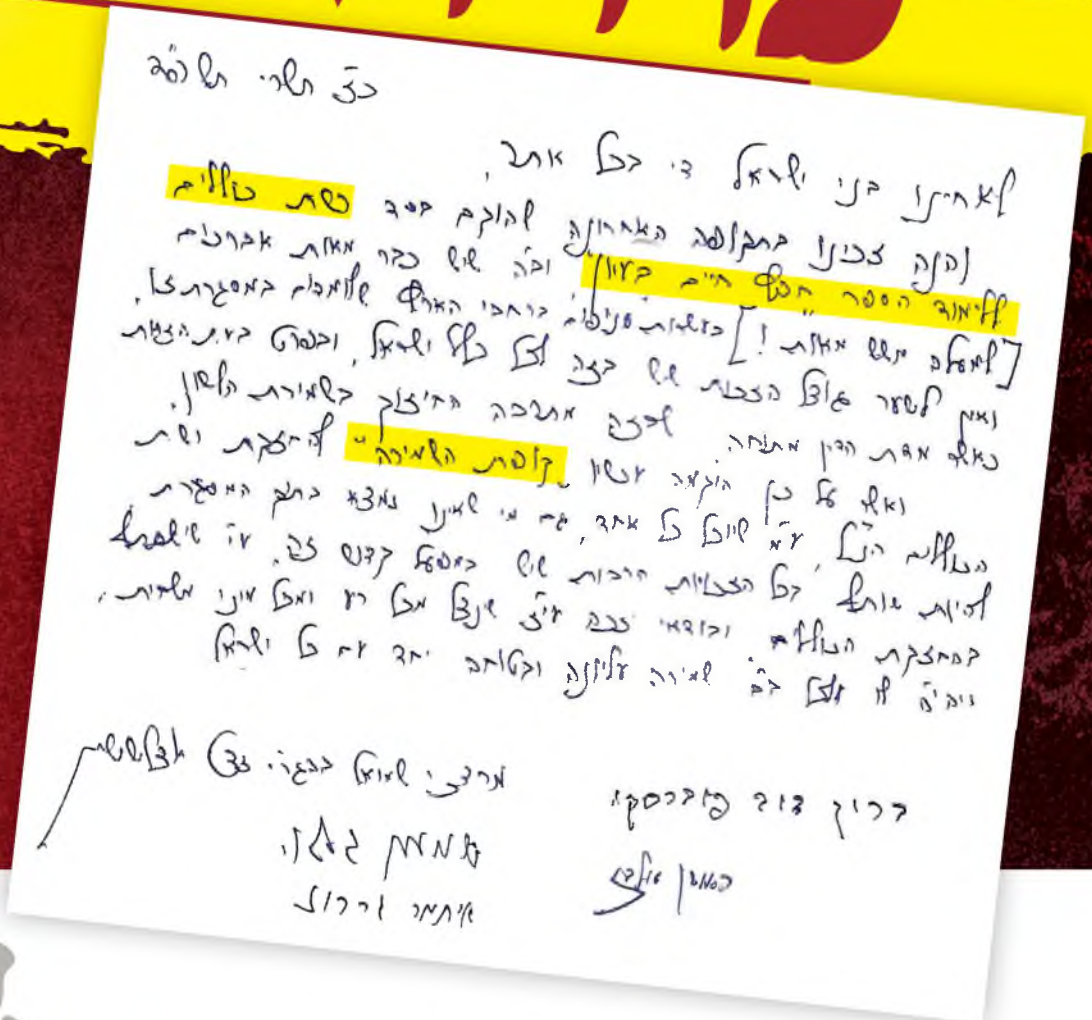 כ"ג תשרי תשפ"ד
לאחינו בני ישראל די בכל אתר,
והנה זכינו בתקופה האחרונה שהוקם בסד רשת כוללים
ללימוד הספר חפץ חיים בעיון" וב"ה שיש כבר מאות אברכים
[למעלה משש מאות!] בעשרות סניפים ברחבי הארץ שלומדים במסגרת זו,
ואין לשער גודל הזכות שיש בזה לכל כלל ישראל, ובפרט בעת הזאת
כאשר מדת הדין מתוחה שבזה מתרבה החיזוק בשמירת הלשון.
ואשר על כן הוקמה עכשיו "קופת השמירה" להחזקת רשת
הכוללים הנ"ל, ע"מ שיוכל כל אחד, גם מי שאינו נמצא בתוך המסגרת
להיות שותף בכל הזכויות הרבות שיש במפעל קדוש זה, ע"י שישתתף
בהחזקת הכוללים ובודאי יזכה עי"ז שינצל מכל רע ומכל מיני משחית,
ויהי' לו אצל בם שמירה עליונה ובטוחה יחד עם כל ישראל
ברוך דוב פוברסקי
מרדכי שמואל בהגר"י זצ"ל אדלשטיין
שמעון גלאי
איתמר גרבוז